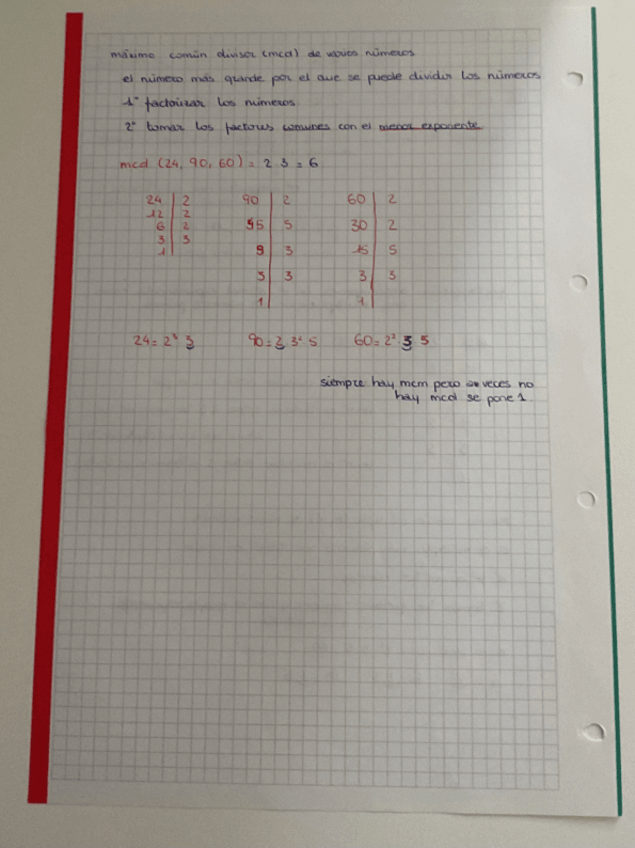 máximo común divisor (mcd) de varios números
el número más grande por el que se puede dividir los números
1º factorizar los números
2º tomar los factores comunes con el menor exponente
mcd (24, 90, 60) = 2 3 = 6
24 | 2 90 | 2 60 | 2
12 | 2 45 | 5 30 | 2
6 | 2 9 | 3 15 | 5
3 | 3 3 | 3 3 | 3
1 | 1 | 1 |
24 = 2³ 3 90 = 2 3² 5 60 = 2² 3 5
siempre hay mcm pero veces no
hay mcd se pone 1.